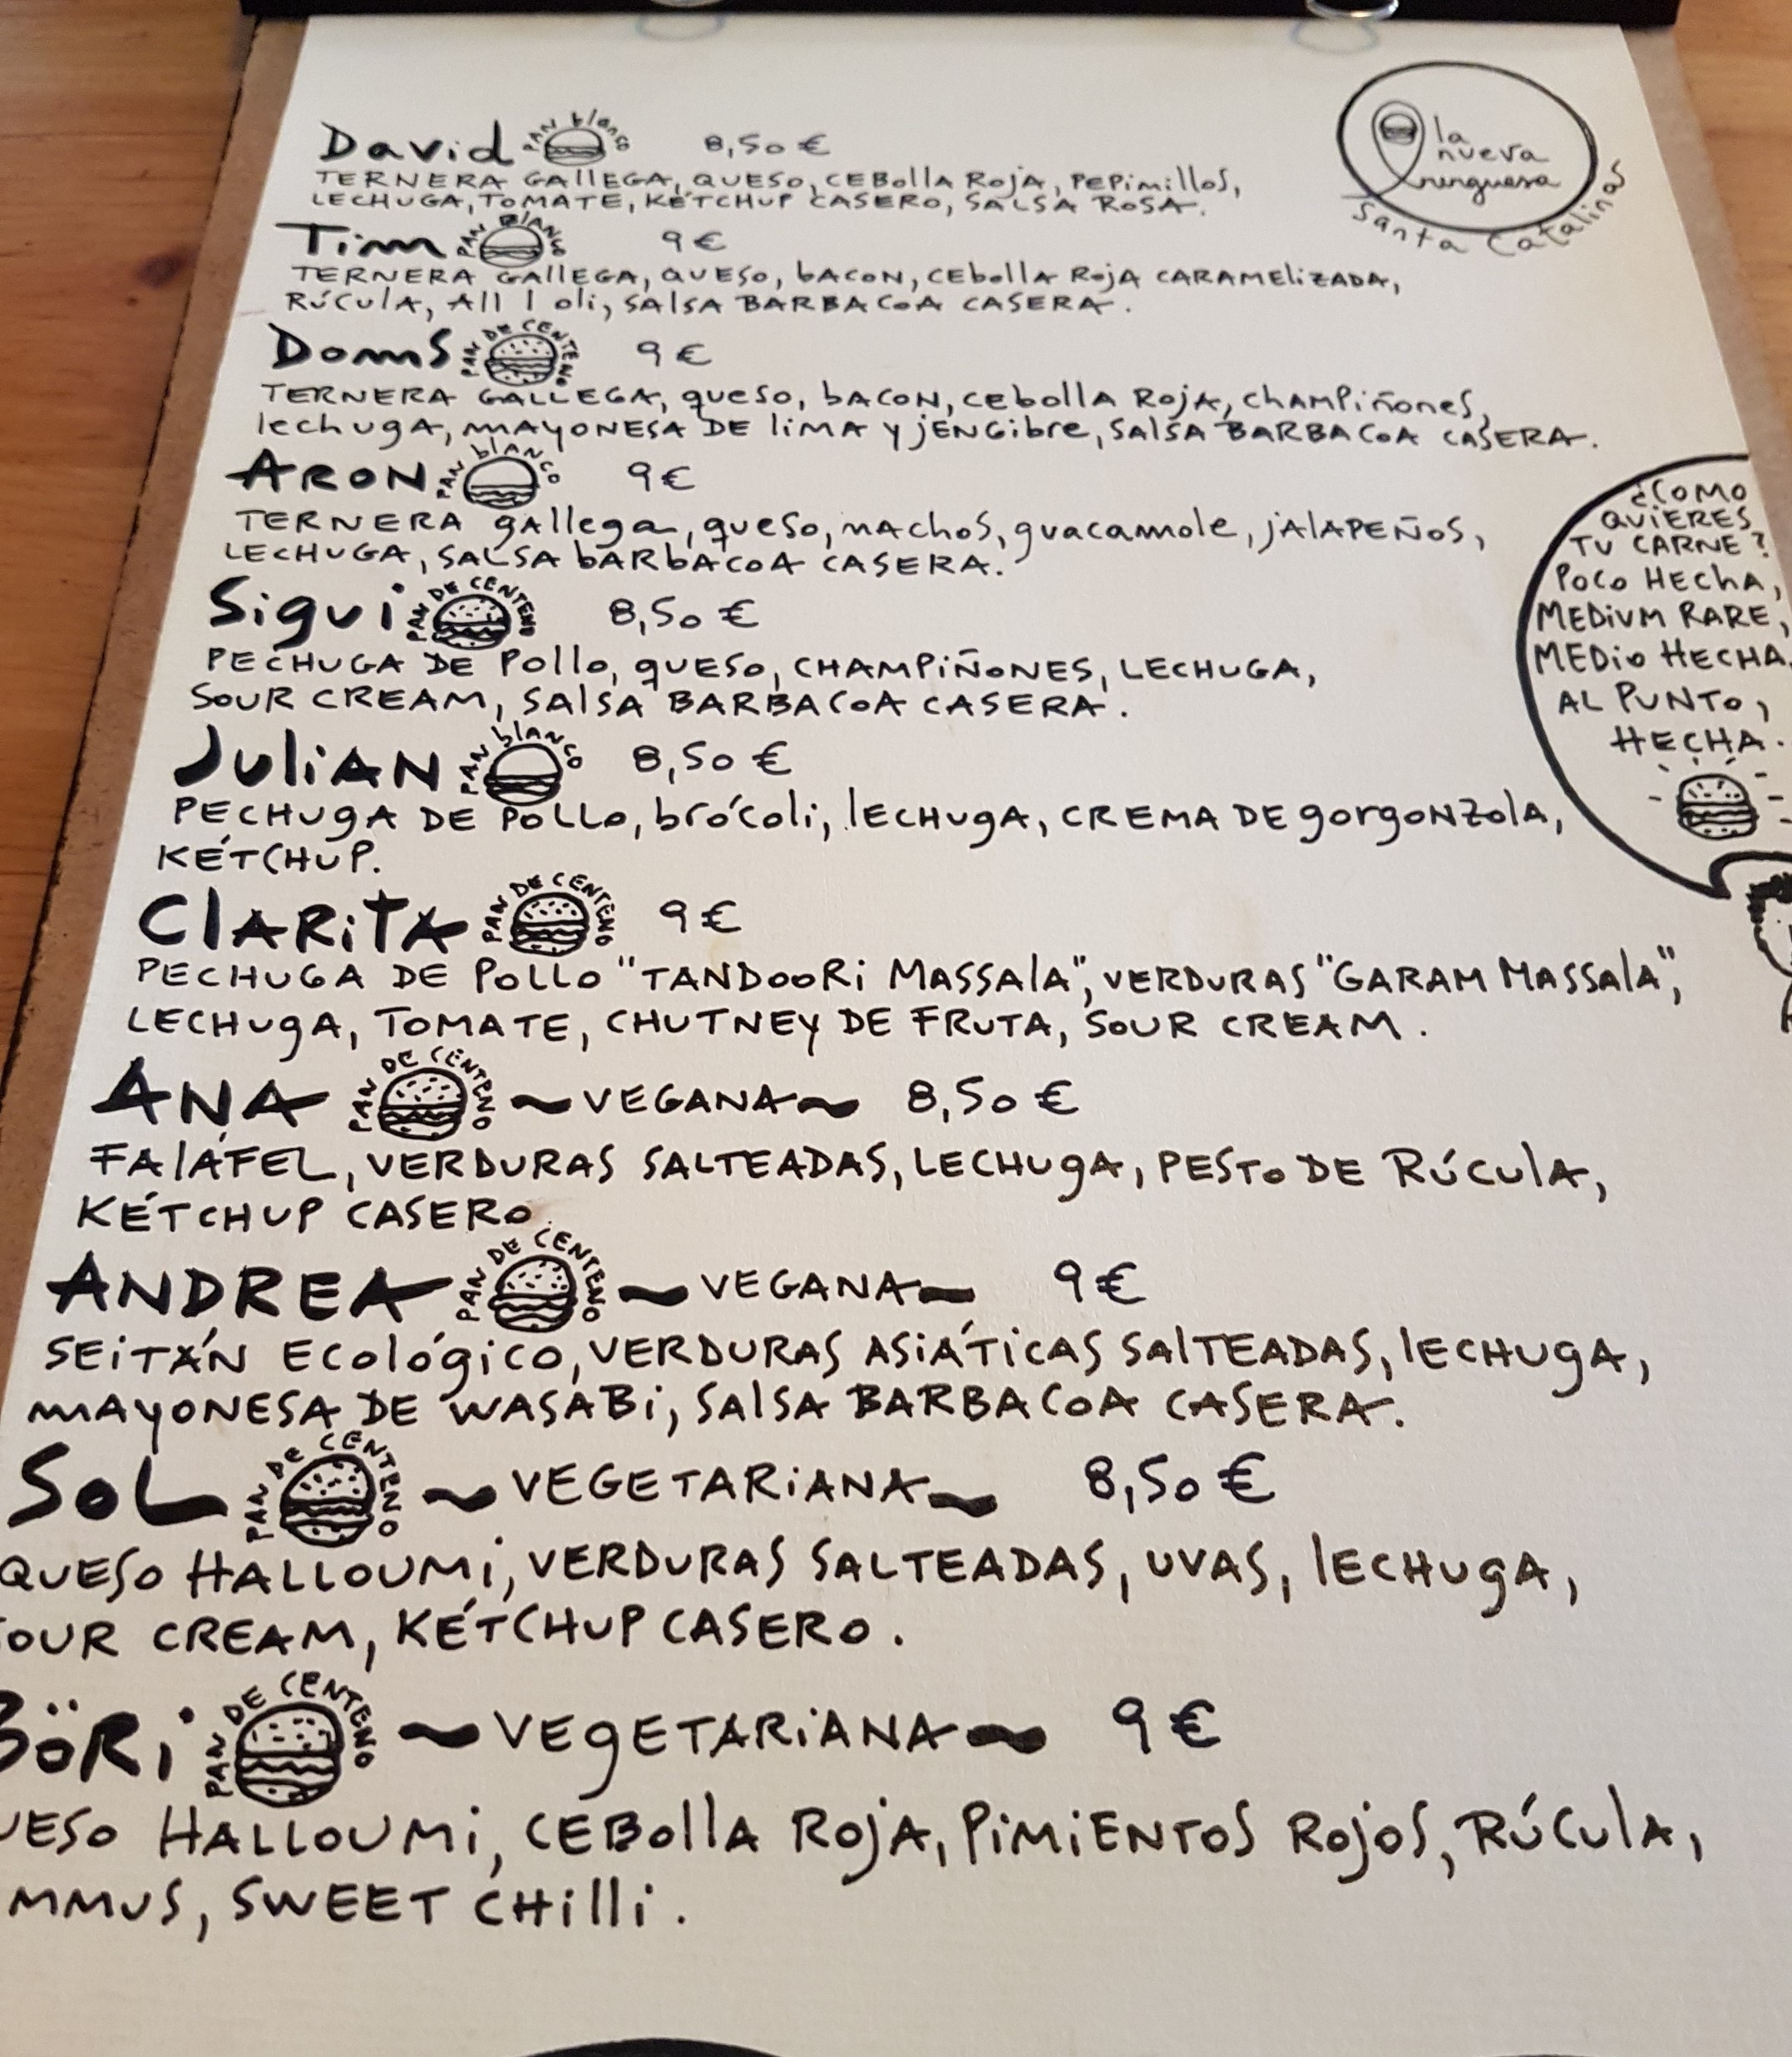 David PAN blanco 8,50 €
TERNERA GALLEGA, QUESO, CEBOLLA ROJA, PEPIMILLOS,
LECHUGA, TOMATE, KÉTCHUP CASERO, SALSA ROSA.
Tim PAN BLANCO 9 €
TERNERA GALLEGA, QUESO, bACON, CEBOLLA ROJA CARAMELIZADA,
RÚCULA, All I oli, SALSA BARBACOA CASERA.
Doms PAN DE CENTENO 9 €
TERNERA GALLEGA, queso, bACON, cebolla Roja, champiñones,
lechuga, MAYONESA DE lima y jENGibre, SALSA BARBACOA CASERA.
ARON PAN blanco 9 €
TERNERA gallega, queso, nachos, guacamole, jALAPEÑOS,
LECHUGA, SALSA bARbACOA CASERA.
Sigui PAN DE CENTENO 8,50 €
PECHUGA DE POLLO, QUESO, CHAMPIÑONES, LECHUGA,
SOUR CREAM, SALSA BARBACOA CASERA.
JULIAN PAN blanco 8,50 €
PECHUGA DE POLLO, brócoli, lECHUGA, CREMA DE gorgonzola,
KÉTCHUP.
CLARITA PAN DE CENTENO 9 €
PECHUGA DE POLLO "TANDOORI MASSALA", VERDURAS "GARAM MASSALA",
LECHUGA, TOMATE, CHUTNEY DE FRUTA, SOUR CREAM.
ANA PAN DE CENTENO ~VEGANA~ 8,50 €
FALÁFEL, VERDURAS SALTEADAS, LECHUGA, PESTO DE RÚCULA,
KÉTCHUP CASERO.
ANDREA PAN DE CENTENO ~VEGANA~ 9 €
SEITÁN ECOLÓGICO, VERDURAS ASIÁTICAS SALTEADAS, lECHUGA,
MAYONESA DE WASABI, SALSA BARBACOA CASERA.
SOL PAN DE CENTENO ~VEGETARIANA~ 8,50 €
QUESO HALLOUMI, VERDURAS SALTEADAS, UVAS, lECHUGA,
SOUR CREAM, KÉTCHUP CASERO.
BÖRI PAN DE CENTENO ~VEGETARIANA~ 9 €
UESO HALLOUMI, CEBOLLA ROJA, PIMIENTOS ROJOS, RÚCULA,
MMUS, SWEET CHILLI.
la
nueva
burguesa
Santa Catalina
¿COMO
QUIERES
TU CARNE?
POCO HECHA,
MEDIUM RARE,
MEDIO HECHA,
AL PUNTO,
HECHA.